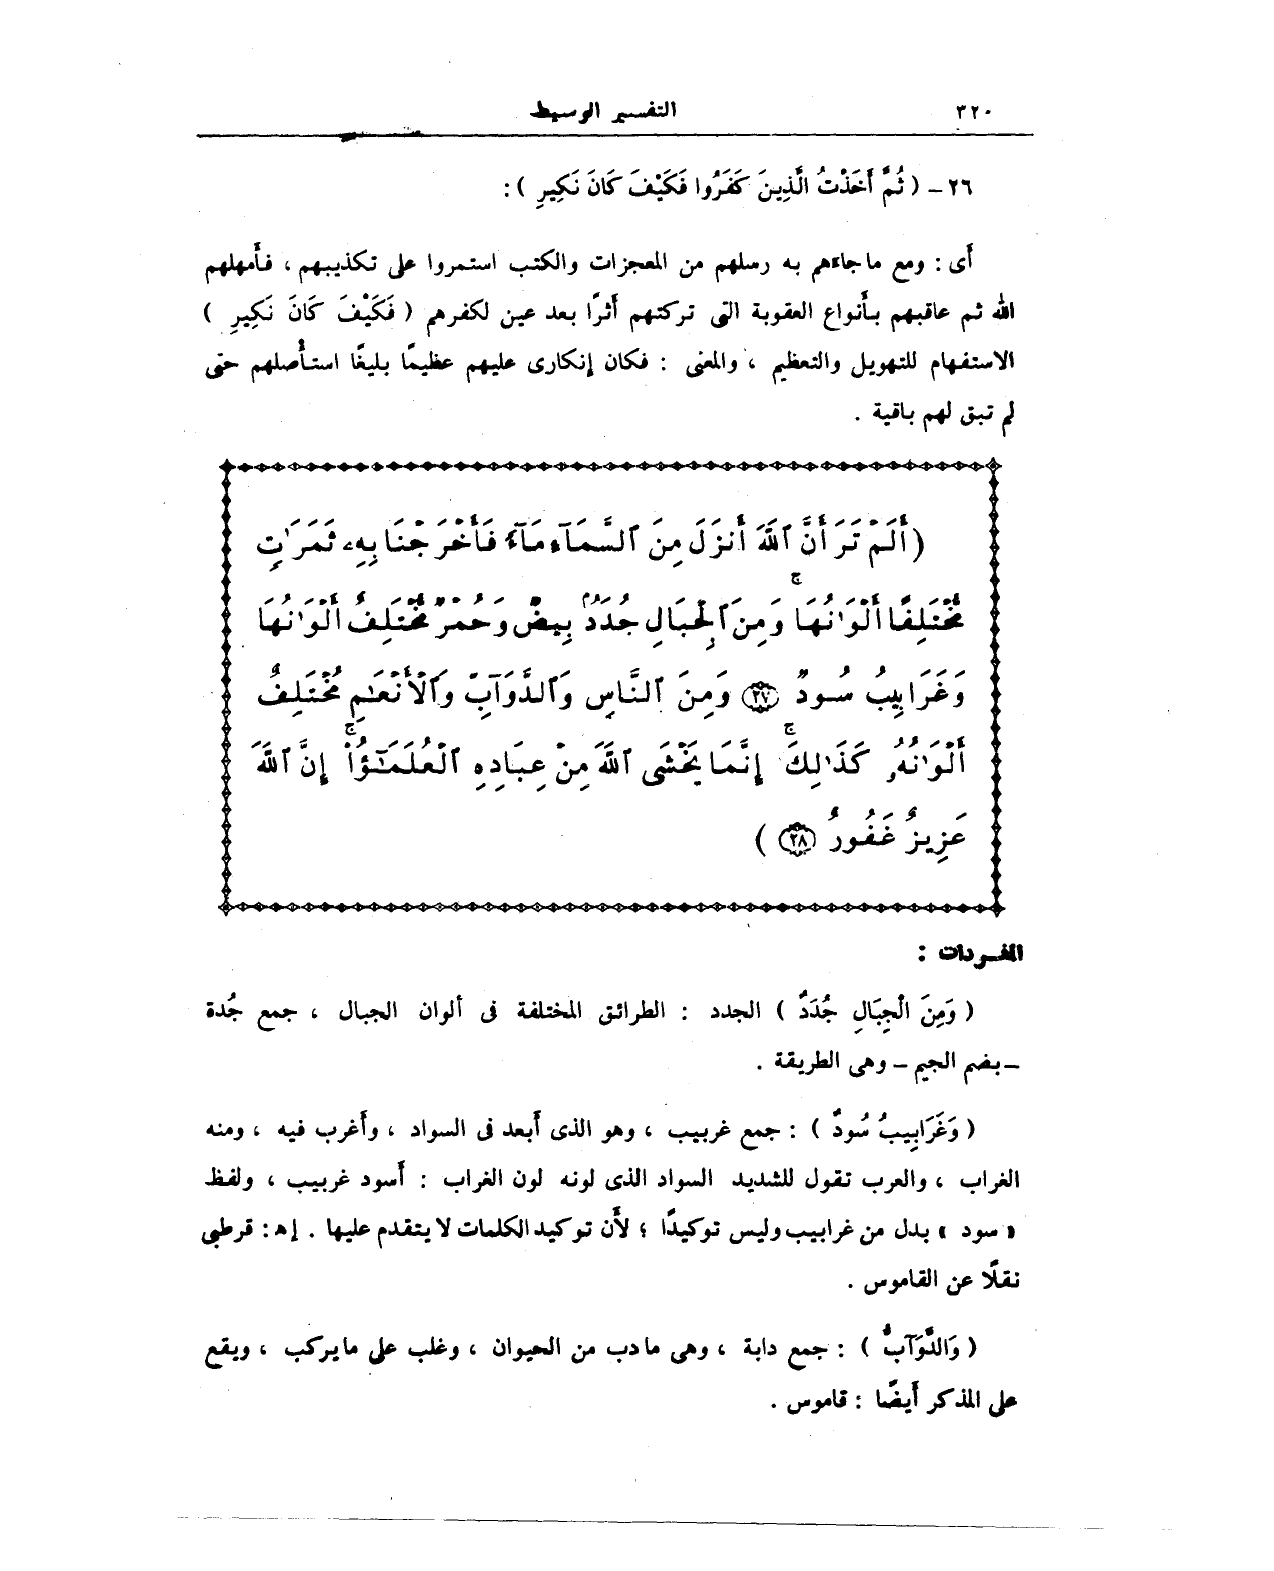 ٣٢٠ التفسير الوسيط
٢٦ – ( ثُمَّ أَخَذْتُ الَّذِينَ كَفَرُوا فَكَيْفَ كَانَ نَكِيرِ ) :
أى : ومع ما جاءهم به رسلهم من المعجزات والكتب استمروا على تكذيبهم ، فأمهلهم
الله ثم عاقبهم بأنواع العقوبة التى تركتهم أثرًا بعد عين لكفرهم ( فَكَيْفَ كَانَ نَكِيرِ )
الاستفهام للتهويل والتعظيم ، والمعنى : فكان إنكارى عليهم عظيمًا بليغًا استأصلهم حتى
لم تبق لهم باقية .
(أَلَمْ تَرَ أَنَّ ٱللَّهَ أَنزَلَ مِنَ ٱلسَّمَآءِ مَآءً فَأَخْرَجْنَا بِهِۦ ثَمَرَٰتٍ
مُّخْتَلِفًا أَلْوَٰنُهَا ۚ وَمِنَ ٱلْجِبَالِ جُدَدٌۢ بِيضٌ وَحُمْرٌ مُّخْتَلِفٌ أَلْوَٰنُهَا
وَغَرَابِيبُ سُودٌ ٢٧ وَمِنَ ٱلنَّاسِ وَٱلدَّوَآبِّ وَٱلْأَنْعَـٰمِ مُخْتَلِفٌ
أَلْوَٰنُهُۥ كَذَٰلِكَ ۚ إِنَّمَا يَخْشَى ٱللَّهَ مِنْ عِبَادِهِ ٱلْعُلَمَـٰٓؤُا۟ ۗ إِنَّ ٱللَّهَ
عَزِيزٌ غَفُورٌ ٢٨ )
المفـردات :
( وَمِنَ الْجِبَالِ جُدَدٌ ) الجدد : الطرائق المختلفة فى ألوان الجبال ، جمع جُدة
– بضم الجيم – وهى الطريقة .
( وَغَرَابِيبُ سُودٌ ) : جمع غربيب ، وهو الذى أبعد فى السواد ، وأغرب فيه ، ومنه
الغراب ، والعرب تقول للشديد السواد الذى لونه لون الغراب : أسود غربيب ، ولفظ
« سود » بدل من غرابيب وليس توكيدًا ؛ لأن توكيد الكلمات لا يتقدم عليها . إھ : قرطبى
نقلًا عن القاموس .
( وَالدَّوَآبُّ ) : جمع دابة ، وهى ما دب من الحيوان ، وغلب على ما يركب ، ويقع
على المذكر أيضًا : قاموس .